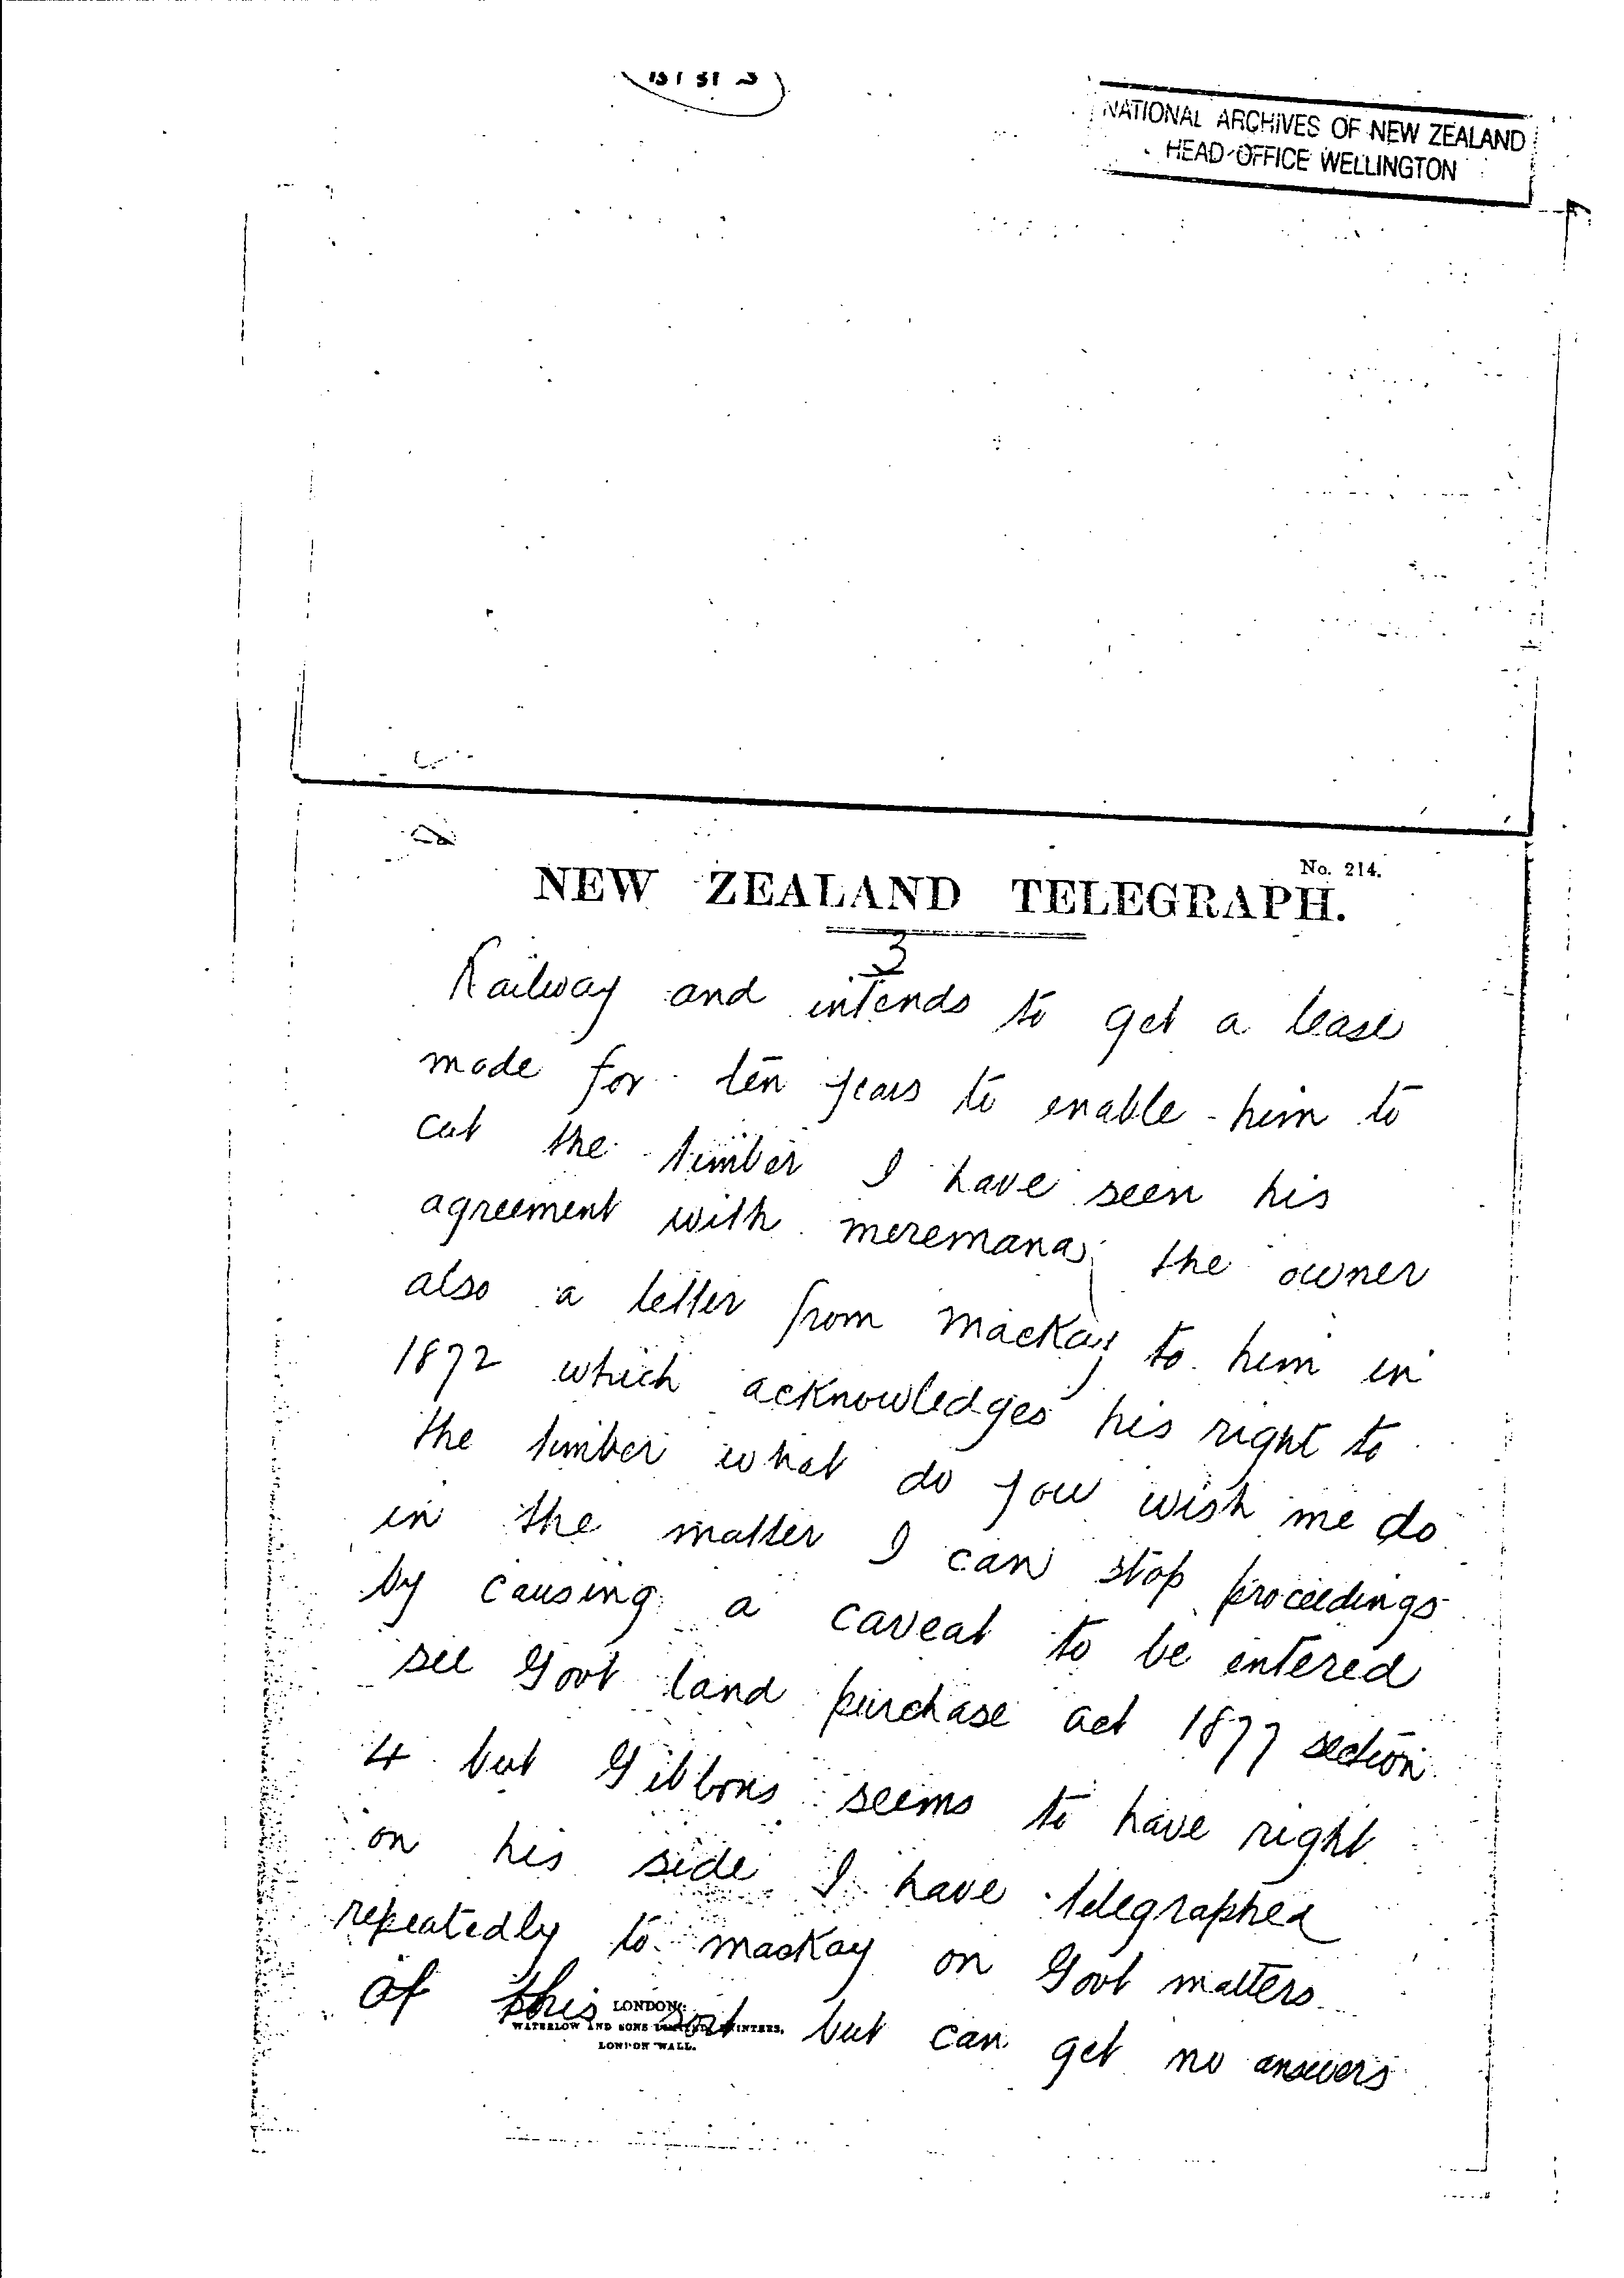 NATIONAL ARCHIVES OF NEW ZEALAND
HEAD OFFICE WELLINGTON
No. 214.
NEW ZEALAND TELEGRAPH.
3
Railway and intends to get a lease
made for ten years to enable him to
cut the timber I have seen his
agreement with meremana the owner
also a letter from mackay to him in
1872 which acknowledges his right to
the timber what do you wish me do
in the matter I can stop proceedings
by causing a caveat to be entered
see Govt land purchase act 1877 section
4 but Gibbons seems to have right
on his side I have telegraphed
repeatedly to mackay on Govt matters
of this sort but can get no answers
LONDON:
WATERLOW AND SONS LIMITED, PRINTERS,
LONDON WALL.